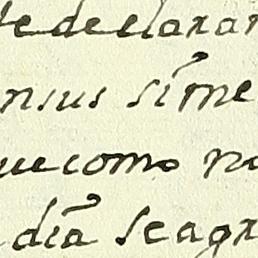 te declarar
nsus si me
ue como no
dia se agr